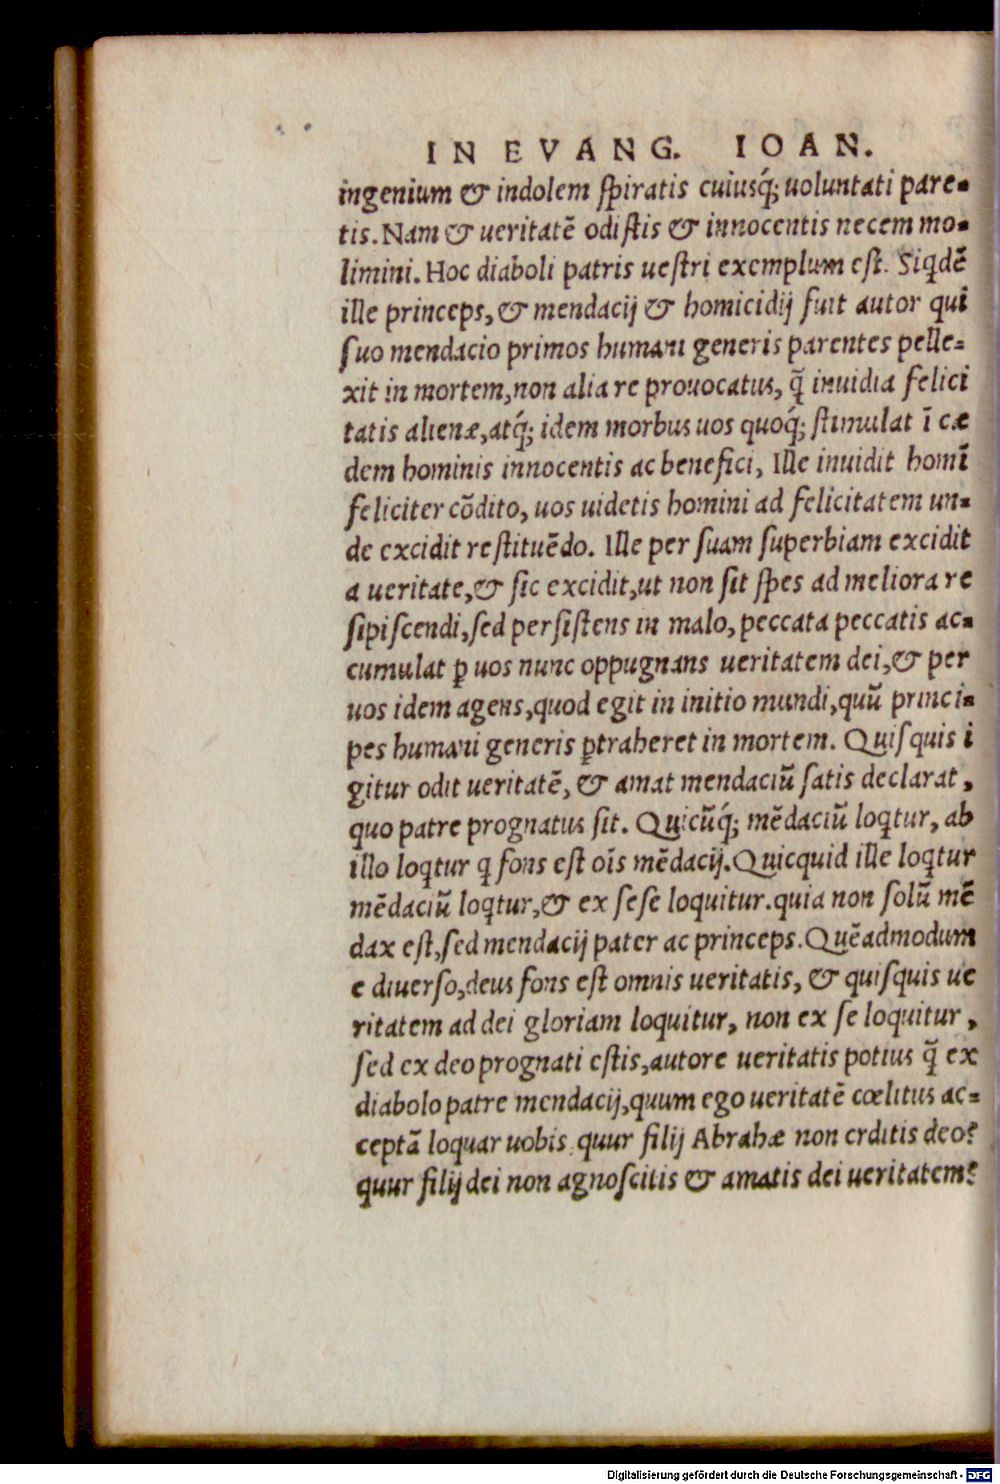 IN EVANG. IOAN.
ingenium & indolem ſpiratis cuiusq́; uoluntati pare-
tis. Nam & ueritatē odiſtis & innocentis necem mo-
limini. Hoc diaboli patris ueſtri exemplum eſt. Siqdē
ille princeps, & mendacij & homicidij fuit autor qui
ſuo mendacio primos humani generis parentes pelle-
xit in mortem, non alia re prouocatus, q̃ inuidia felici
tatis alienæ, atq́; idem morbus uos quoq́; ſtimulat ī cæ
dem hominis innocentis ac benefici, Ille inuidit homī
feliciter cōdito, uos uidetis homini ad felicitatem un-
de excidit reſtituēdo. Ille per ſuam ſuperbiam excidit
a ueritate, & ſic excidit, ut non ſit ſpes ad meliora re
ſipiſcendi, ſed perſiſtens in malo, peccata peccatis ac-
cumulat ꝑ uos nunc oppugnans ueritatem dei, & per
uos idem agens, quod egit in initio mundi, quū princi-
pes humani generis ꝑtraheret in mortem. Quiſquis i
gitur odit ueritatē, & amat mendaciū ſatis declarat,
quo patre prognatus ſit. Quicūq́; mēdaciū loqtur, ab
illo loqtur q fons eſt oīs mēdacij. Quicquid ille loqtur
mēdaciū loqtur, & ex ſeſe loquitur. quia non ſolū mē
dax eſt, ſed mendacij pater ac princeps. Quēadmodum
e diuerſo, deus fons eſt omnis ueritatis, & quiſquis ue
ritatem ad dei gloriam loquitur, non ex ſe loquitur,
ſed ex deo prognati eſtis, autore ueritatis potius q̃ ex
diabolo patre mendacij, quum ego ueritatē cœlitus ac-
ceptā loquar uobis, quur filij Abrahæ non crditis deo?
quur filij dei non agnoſcitis & amatis dei ueritatem?
Digitalisierung gefördert durch die Deutsche Forschungsgemeinschaft - DFG